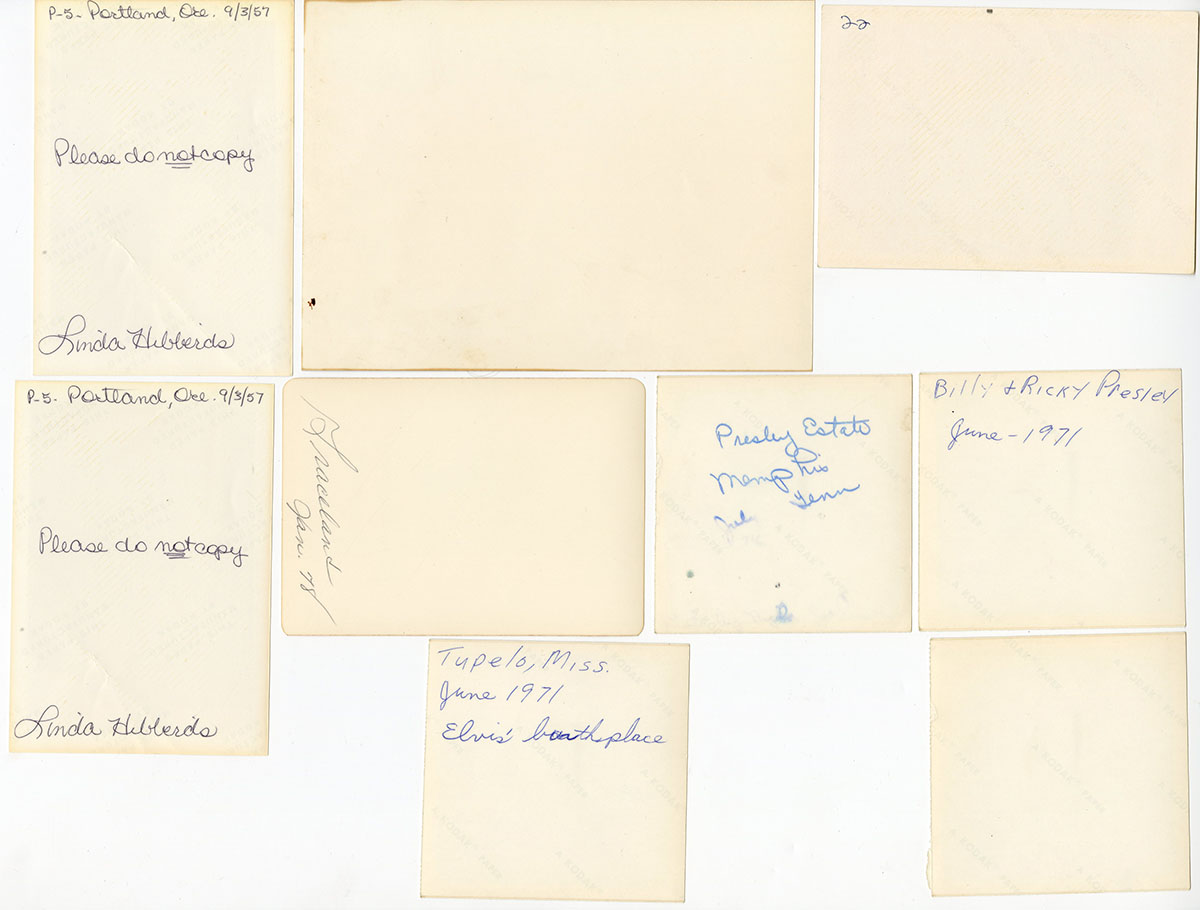 P-5- Portland, Ore. 9/3/57
Please do not copy
Linda Hibberds
22
P-5- Portland, Ore. 9/3/57
Please do not copy
Linda Hibberds
Graceland
Jan. 78
Presley Estate
Memphis
Tenn
July
Billy & Ricky Presley
June - 1971
Tupelo, Miss.
June 1971
Elvis' birthsplace
A KODAK PAPER